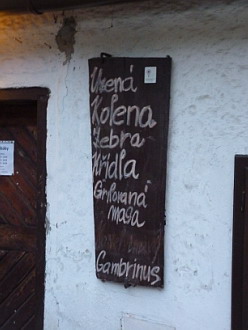 Uzená
Kolena
Žebra
Křídla
Grilovaná
masa
Gambrinus